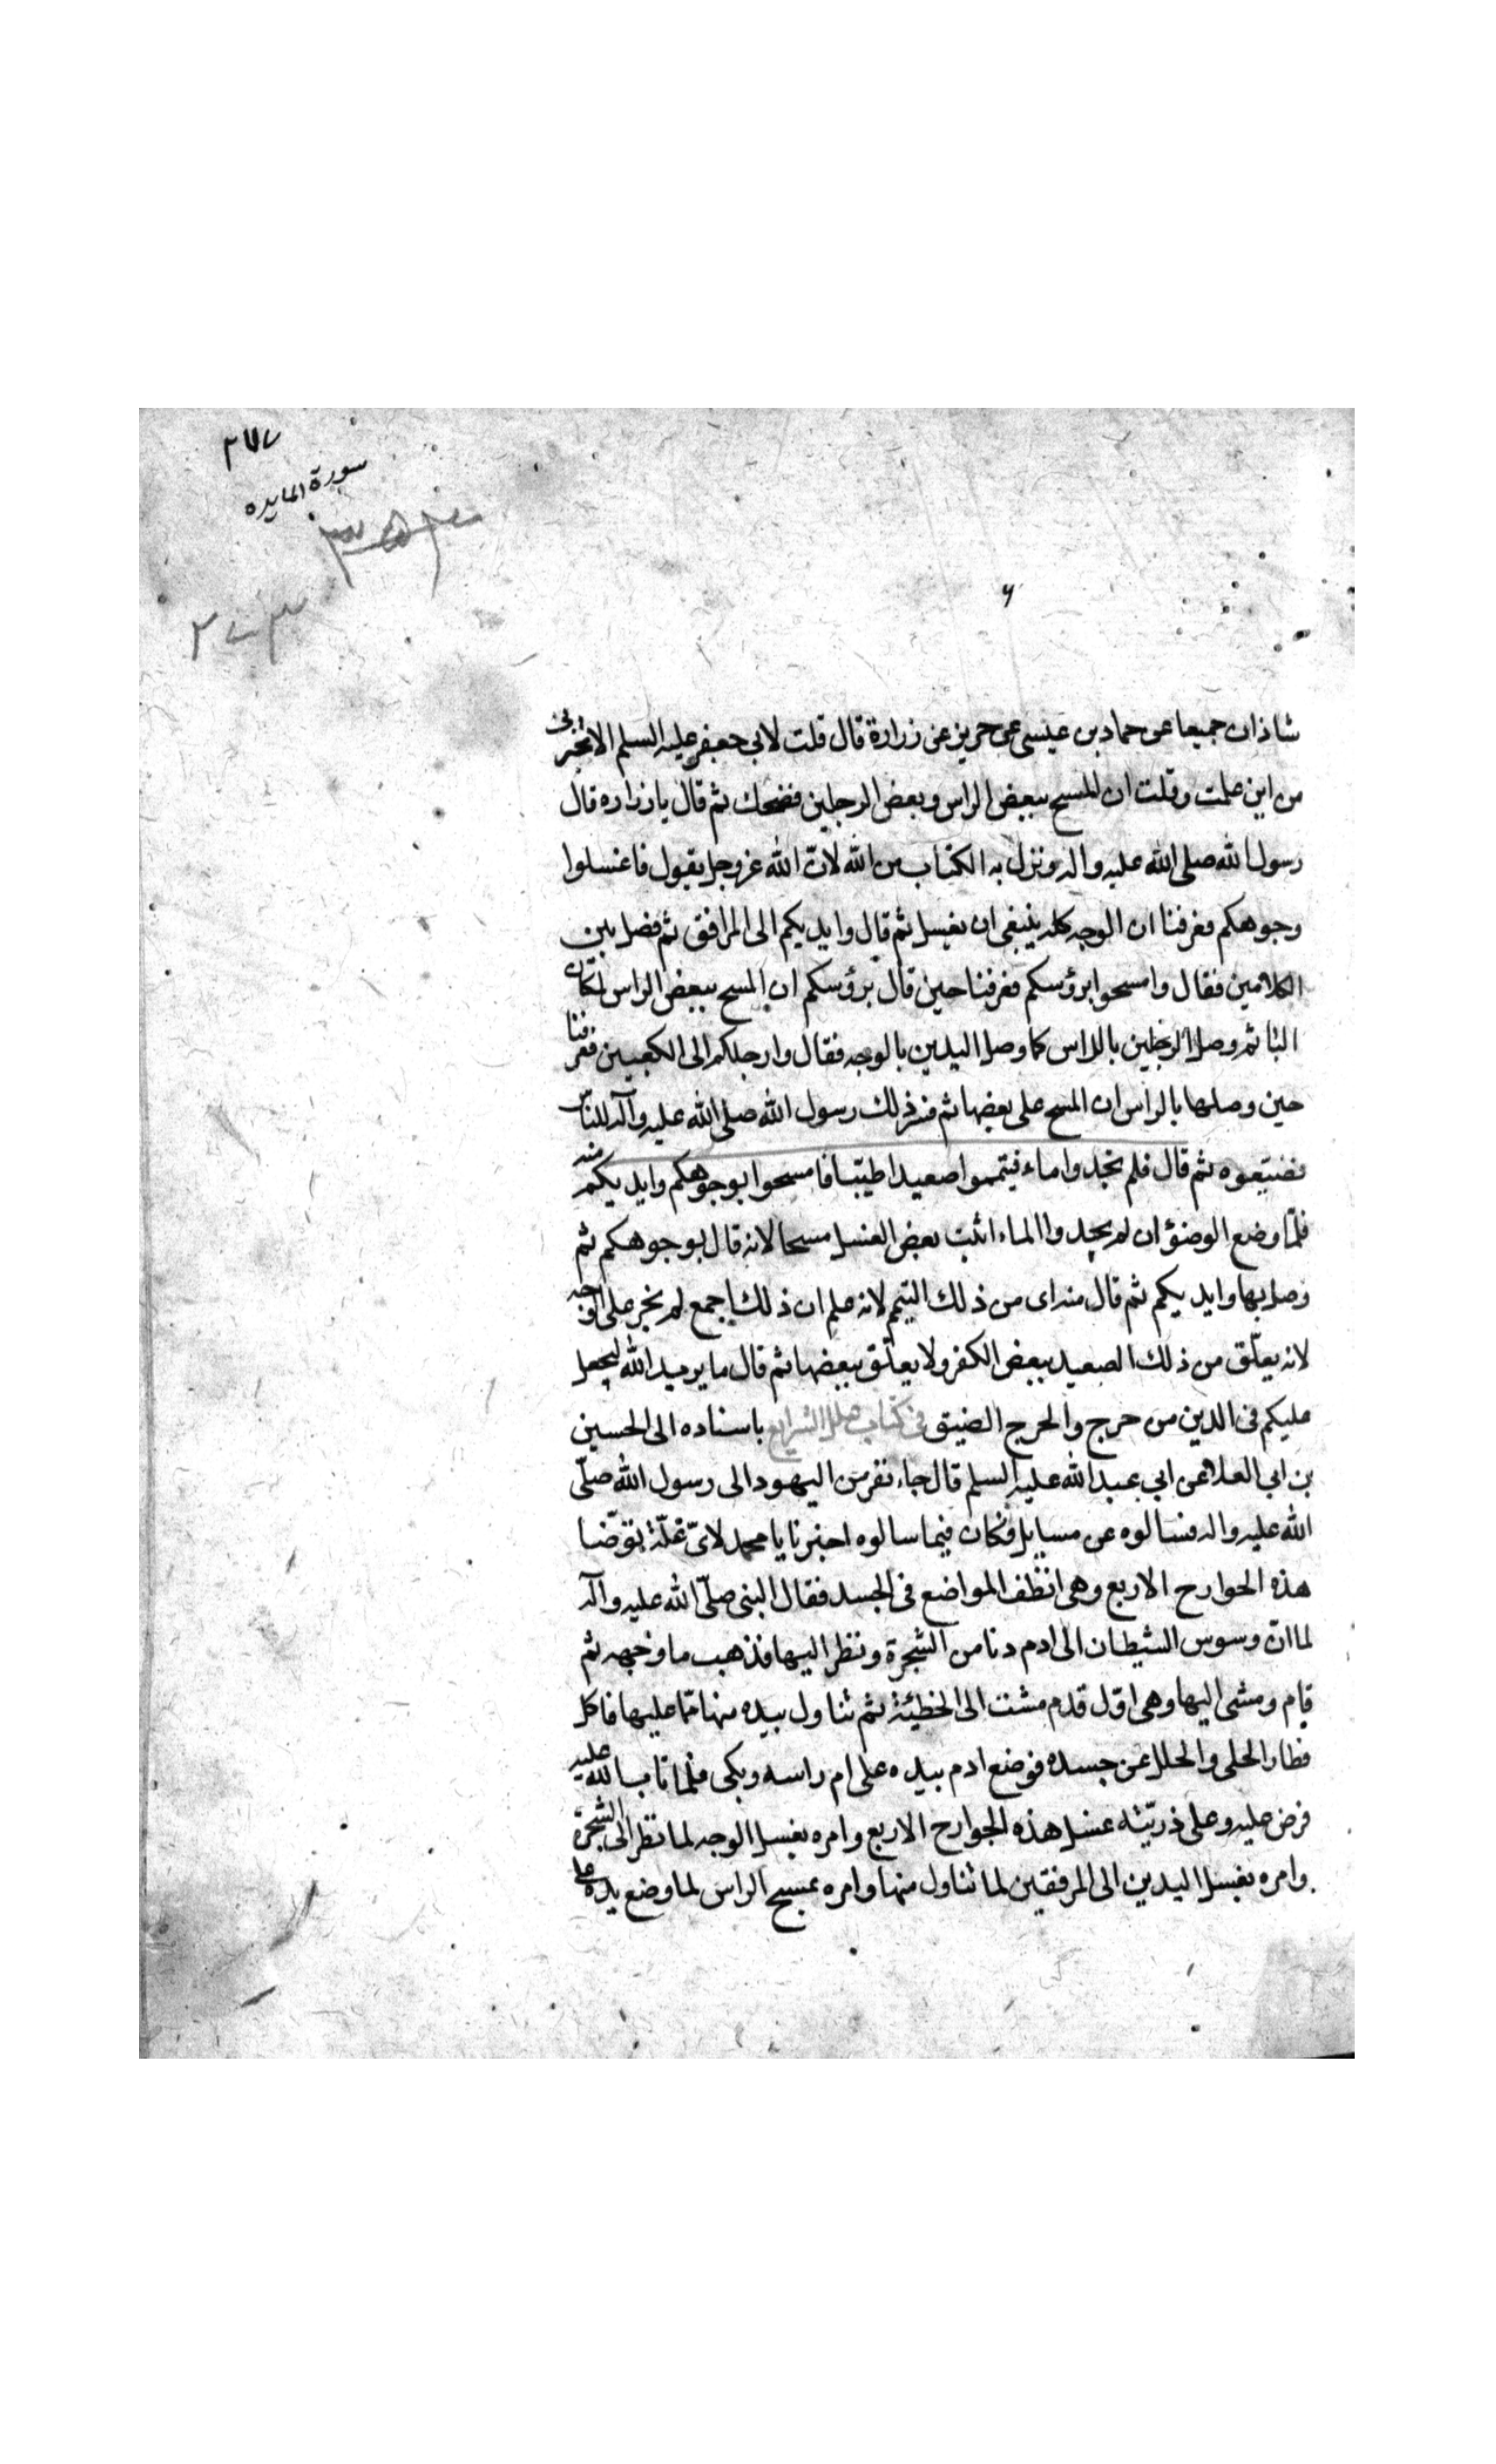 سورة المايده
شاذان جميعا عن حماد بن عيسى عن حريز عن زرارة قال قلت لابي جعفر عليه السلم الا تخبرنى
من اين علمت وقلت ان المسح ببعض الراس وبعض الرجلين فضحك ثم قال يا زراره قال
رسول الله صلى الله عليه واله ونزل به الكتاب من الله لانّ الله عزوجل يقول فاغسلوا
وجوهكم فعرفنا ان الوجه كله ينبغى ان يغسل ثم قال وايديكم الى المرافق ثم فصل بين
الكلامين فقال وامسحوا برؤسكم فعرفنا حين قال برؤسكم ان المسح ببعض الراس لمكان
البا ثم وصل الرجلين بالراس كما وصل اليدين بالوجه فقال وارجلكم الى الكعبين فعرفنا
حين وصلها بالراس ان المسح على بعضها ثم فسر ذلك رسول الله صلى الله عليه وآله للناس
فضيّعوه ثم قال فلم تجدوا ماء فتيمموا صعيدا طيّبا فامسحوا بوجوهكم وايديكم منه
فلمّا وضع الوضؤ ان لم يجدوا الماء اثبت بعض الغسل مسحا لانه قال بوجوهكم ثم
وصل بها وايديكم ثم قال منه اى من ذلك التيمم لانه علم ان ذلك اجمع لم يجر على الوجه
لانه يعلّق من ذلك الصعيد ببعض الكف ولا يعلّق ببعضها ثم قال ما يريد الله ليجعل
عليكم فى الدين من حرج والحرج الضيق فى كتاب علل الشرايع باسناده الى الحسين
بن ابي العلا عن ابي عبدالله عليه السلم قال جاء نفر من اليهود الى رسول الله صلّى
الله عليه واله فسالوه عن مسايل فكان فيما سالوه اخبرنا يا محمد لاىّ علّة توضّا
هذه الجوارح الاربع وهى انظف المواضع فى الجسد فقال النبى صلّى الله عليه وآله
لما ان وسوس الشيطان الى ادم دنا من الشجرة ونظر اليها فذهب ماوجهه ثم
قام ومشى اليها وهى اوّل قدم مشت الى الخطيئة ثم تناول بيده منها ممّا عليها فاكل
فطار الحلى والحلل عن جسده فوضع ادم بيده على ام راسه وبكى فلما تاب الله عليه
فرض عليه وعلى ذريّته غسل هذه الجوارح الاربع وامره بغسل الوجه لما نظر الى الشجرة
وامره بغسل اليدين الى المرفقين لما تناول منها وامره بمسح الراس لما وضع يده على